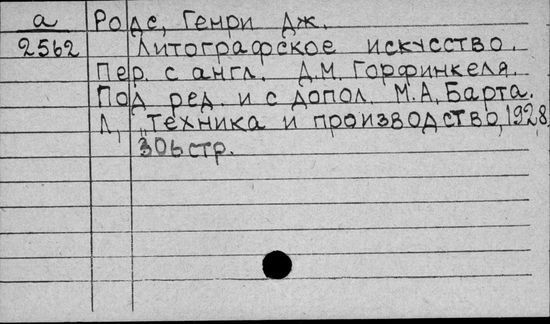 а Родс, Генри Дж.
2562 Литографское искусство.
Пер. с англ. Д.М. Горфинкеля.
Под ред. и с допол. М.А. Барта.
Л., „Техника и производство, 1928
306 стр.